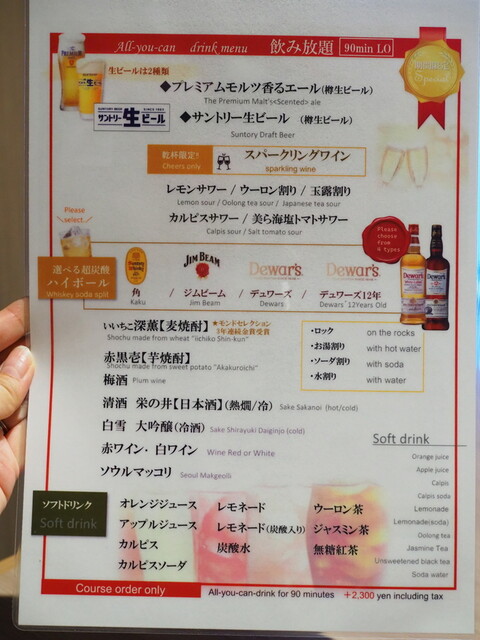 All-you-can drink menu 飲み放題 90min LO
Special
生ビールは2種類
◆プレミアムモルツ香るエール(樽生ビール)
The Premium Malt's<Scented> ale
サントリー 生ビール
◆サントリー生ビール (樽生ビール)
Suntory Draft Beer
乾杯限定! スパークリングワイン
Cheers only sparkling wine
レモンサワー / ウーロン割り / 玉露割り
Lemon sour / Oolong tea sour / Japanese tea sour
Please select
カルピスサワー / 美ら海塩トマトサワー
Calpis sour / Salt tomato sour
Please choose from 4 types
選べる超炭酸
ハイボール
Whiskey soda split
JIM BEAM Dewar's Dewar's
角 / ジムビーム / デュワーズ / デュワーズ12年
Kaku Jim Beam Dewars Dewars 12Years Old
いいちこ深薫【麦焼酎】 ★モンドセレクション3年連続金賞受賞
Shochu made from wheat "Iichiko Shin-kun"
赤黒壱【芋焼酎】
Shochu made from sweet potato "Akakuroichi"
・ロック on the rocks
・お湯割り with hot water
・ソーダ割り with soda
・水割り with water
梅酒 Plum wine
清酒 栄の井【日本酒】(熱燗/冷) Sake Sakanoi (hot/cold)
白雪 大吟醸(冷酒) Sake Shirayuki Daiginjo (cold)
赤ワイン・白ワイン Wine Red or White
ソウルマッコリ Seoul Makgeolli
ソフトドリンク
Soft drink
オレンジジュース レモネード ウーロン茶
アップルジュース レモネード(炭酸入り) ジャスミン茶
カルピス 炭酸水 無糖紅茶
カルピスソーダ
Soft drink
Orange juice
Apple juice
Calpis
Calpis soda
Lemonade
Lemonade(soda)
Oolong tea
Jasmine Tea
Unsweetened black tea
Soda water
Course order only
All-you-can-drink for 90 minutes +2,300 yen including tax